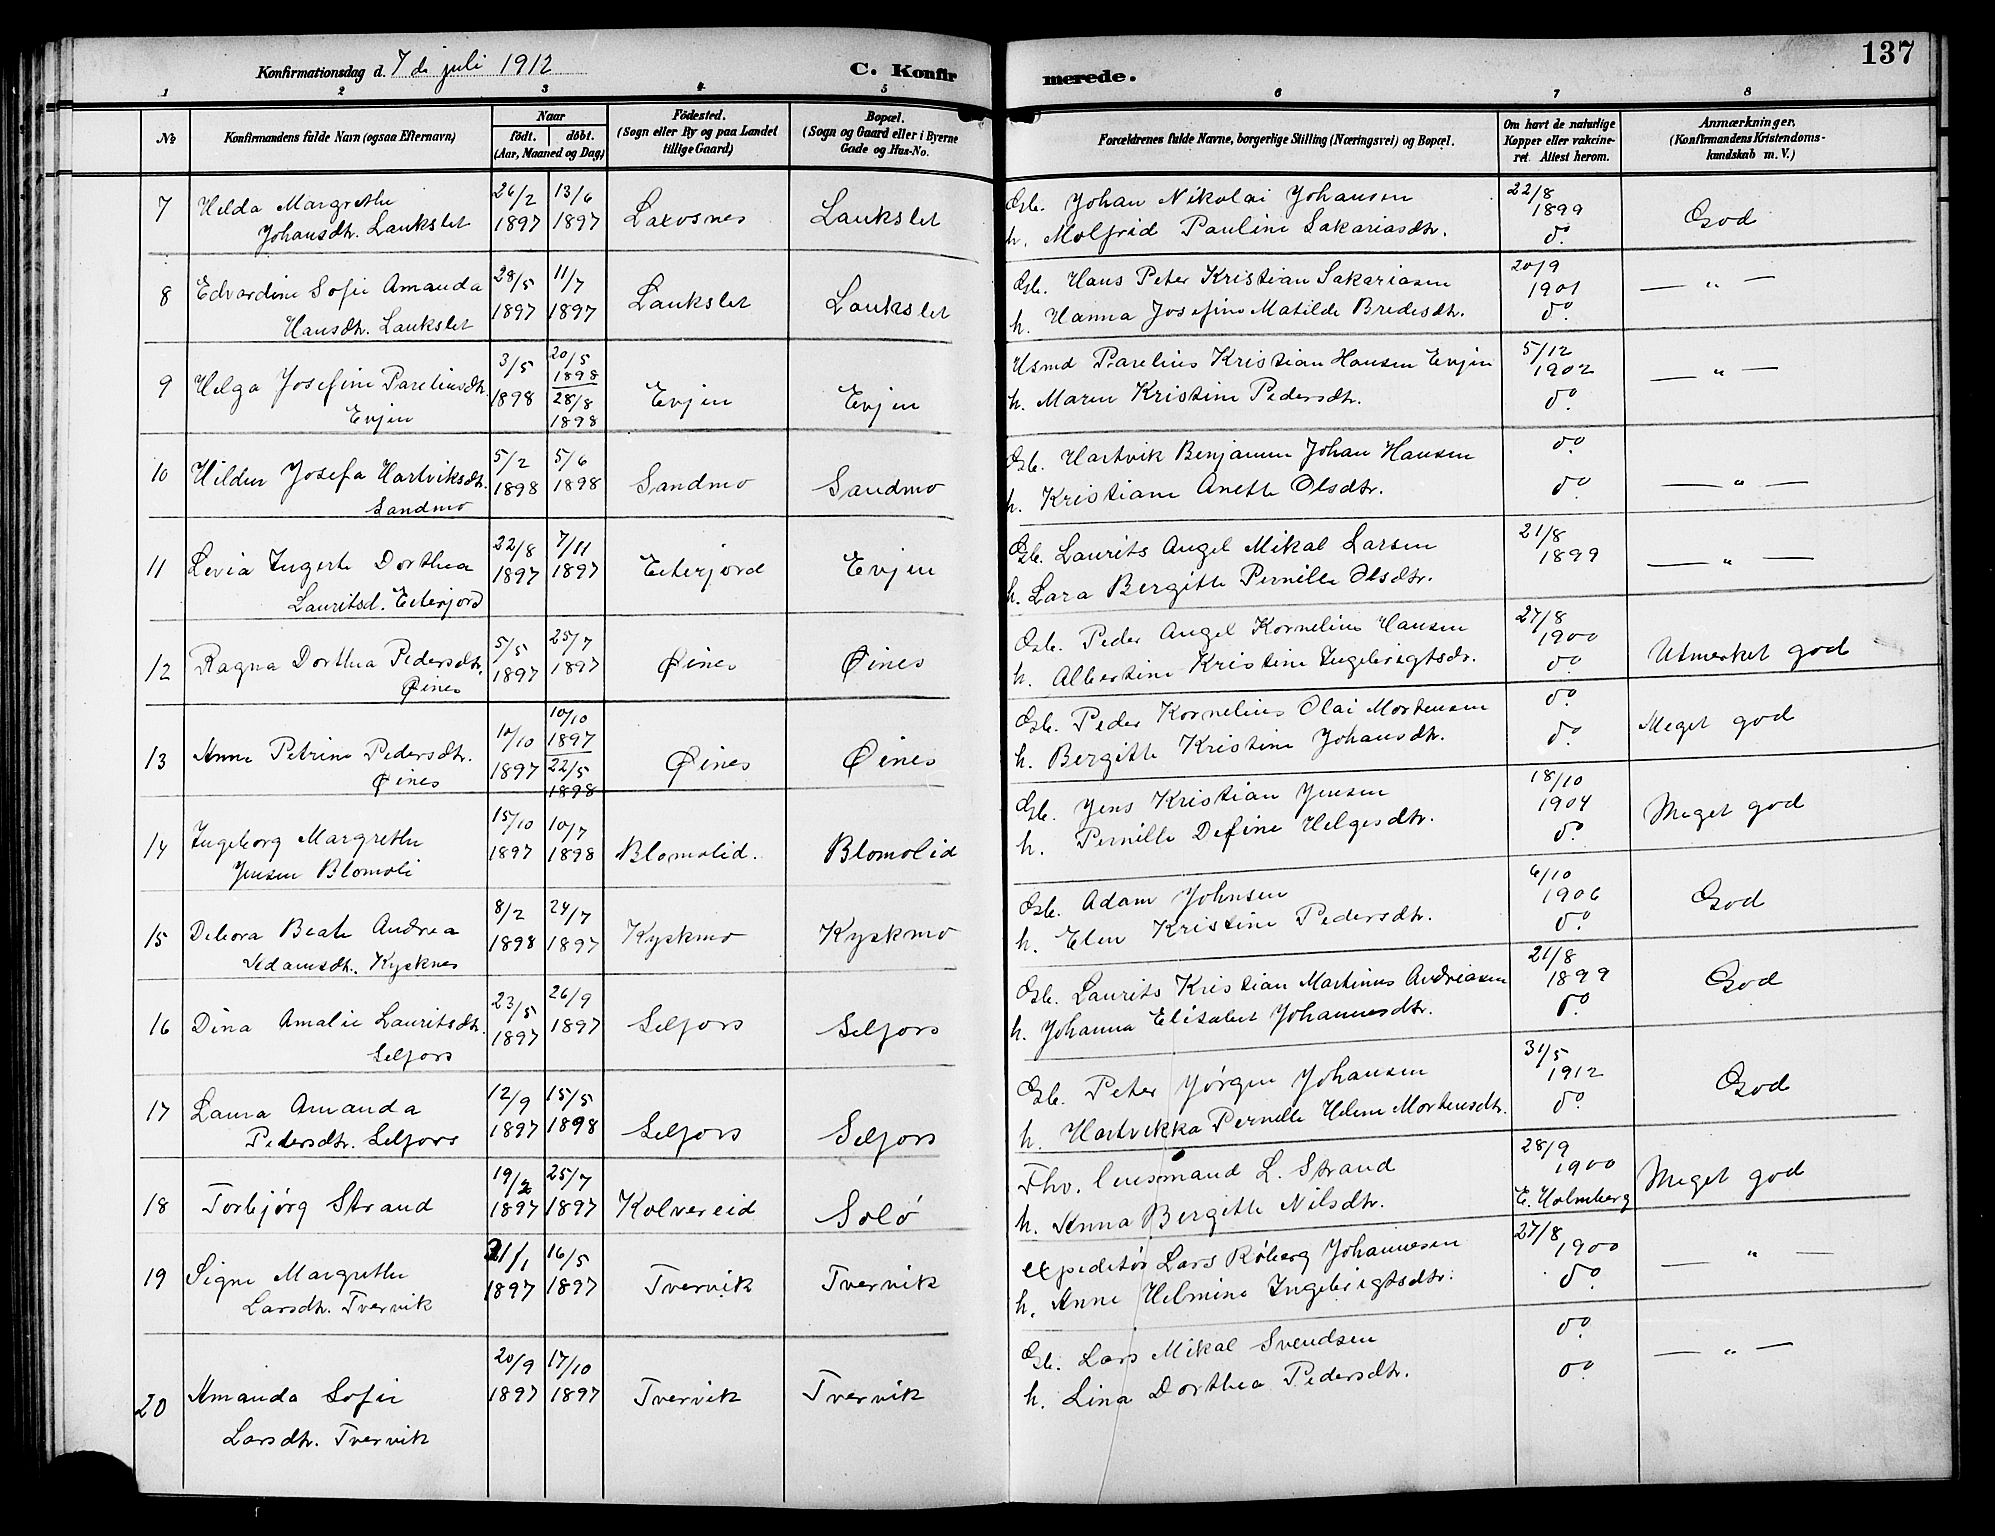 137
Konfirmationsdag d. 7 de juli 1912
C. Konfirmerede.
1 2 3 4 5 6 7 8
No
Konfirmandens fulde Navn (ogsaa Efternavn)
Naar
födt. döbt.
(Aar, Maaned og Dag)
Födested.
(Sogn eller By og paa Landet
tillige Gaard)
Bopæl.
(Sogn og Gaard eller i Byerne
Gade og Hus-No.
Forældrenes fulde Navne, borgerlige Stilling (Næringsvei) og Bopæl.
Om havt de naturlige
Kopper eller vakcine-
ret. Attest herom.
Anmærkninger.
(Konfirmandens Kristendoms-
kundskab m. V.)
7 Hilda Margrethe 26/2 13/6
Johansdtr. Laukslet 1897 1897 Laxosnes Laukslet
Gb. Johan Nikolai Johansen 22/8
1899
h. Molfrid Pauline Sakariasdtr. do. God
8 Edvardine Sofie Amanda 28/5 11/7
Hansdtr. Laukslet 1897 1897 Laukslet Laukslet
Gb. Hans Peter Kristian Sakariasen 20/9
1901
h. Hanna Josefine Matilde Bredesdtr. do. — „ —
9 Helga Josefine Pareliusdtr. 3/5 20/5
1898
Evjen 1898 28/8
1898 Evjen Evjen
Usmd Parelius Kristian Hansen Evjen 5/12
1902
h. Maren Kristine Pedersdtr. do. — „ —
10 Hildur Josefa Hartviksdtr. 5/2 5/6
Sandmo 1898 1898 Sandmo Sandmo
Gb. Hartvik Benjamin Johan Hansen do
h. Kristiane Anette Olsdtr. do. — „ —
11 Levia Ingerte Dorthea 22/8 7/11
Lauritsd. Eiterjord 1897 1897 Eiterjord Evjen
Gb. Laurits Angel Mikal Larsen 21/8
1899
h. Lara Bergitte Pernille Olsdtr. — „ —
12 Ragna Dorthea Pedersdtr. 5/5 25/7
Øines 1897 1897 Øines Øines
Gb. Peder Angel Kornelius Hansen 27/8
1900
h. Albertine Kristine Ingebrigtsdr. do Utmerket god
13 Anne Petrine Pedersdtr. 10/10 10/10
1897
Øines 1897 22/5
1898 Øines Øines
Gb. Peder Kornelius Olai Mortensen do
h. Bergitte Kristine Johansdtr. do. Meget god
14 Ingeborg Margrethe 15/10 10/7
Jensen Blomoli 1897 1898 Blomolid. Blomolid
Gb. Jens Kristian Jensen 18/10
1904
h. Pernille Define Helgesdtr. do Meget god
15 Debora Beate Andrea 8/2 24/7
Adamsdtr. Kysknes 1898 1897 Kyskmo Kyskmo
Gb. Adam Johnsen 6/10
1906
h. Elen Kristine Pedersdtr. do. God
16 Dina Amalie Lauritsdtr. 23/5 26/9
Selfors 1897 1897 Selfors Selfors
Gb. Laurits Kristian Martinus Andreasen 21/8
1899
h. Johanna Elisabet Johannesdtr. do God
17 Laura Amanda 12/9 15/5
Pedersdtr. Selfors 1897 1898 Selfors Selfors
Gb. Peter Jørgen Johansen 31/5
1912
h. Hartvikka Pernelle Helene Mortensdtr. do. God
18 Torbjørg Strand 19/2 25/7
1897 1897 Kolvereid Solö
Fhv. lensmand L. Strand 28/9
1900
h. Anna Bergitte Nilsdtr. E. Holmberg Meget god
19 Signe Margrethe 31/1 16/5
Larsdtr. Tvervik 1897 1897 Tvervik Tvervik
expeditør Lars Røberg Johannesen 27/8
1900
h. Anne Helmine Ingebrigtsdtr. do. — „ —
20 Amanda Sofie 20/9 17/10
Larsdtr. Tvervik 1897 1897 Tvervik Tvervik
Gb. Lars Mikal Svendsen do.
h. Lina Dorthea Pedersdtr. do — „ —